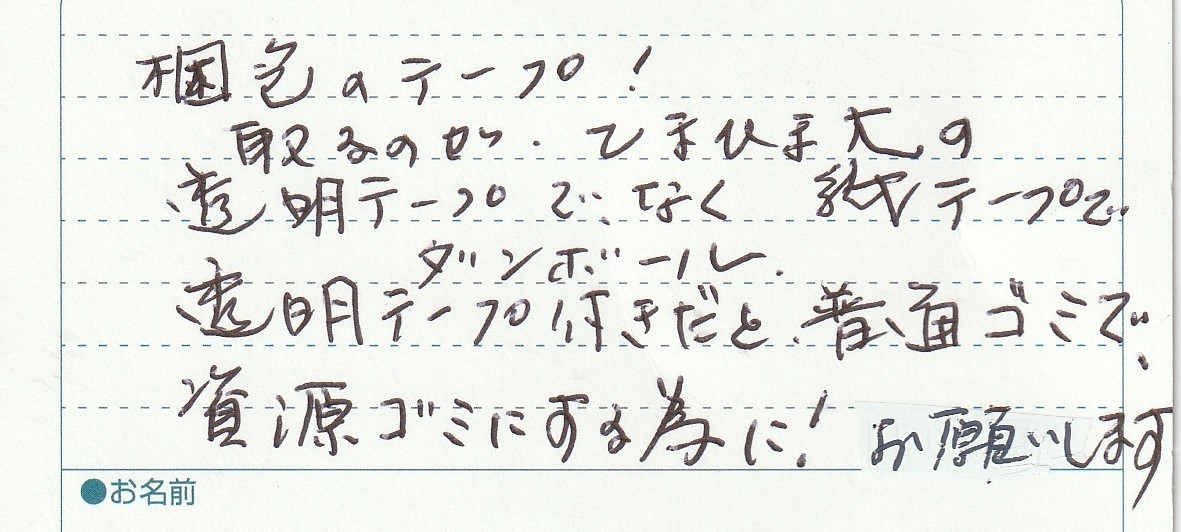 梱包のテープ!
取るのが、てまひま大の
透明テープでなく 紙テープで
ダンボール、
透明テープ付きだと、普通ゴミで、
資源ゴミにする為に! お願いします
●お名前